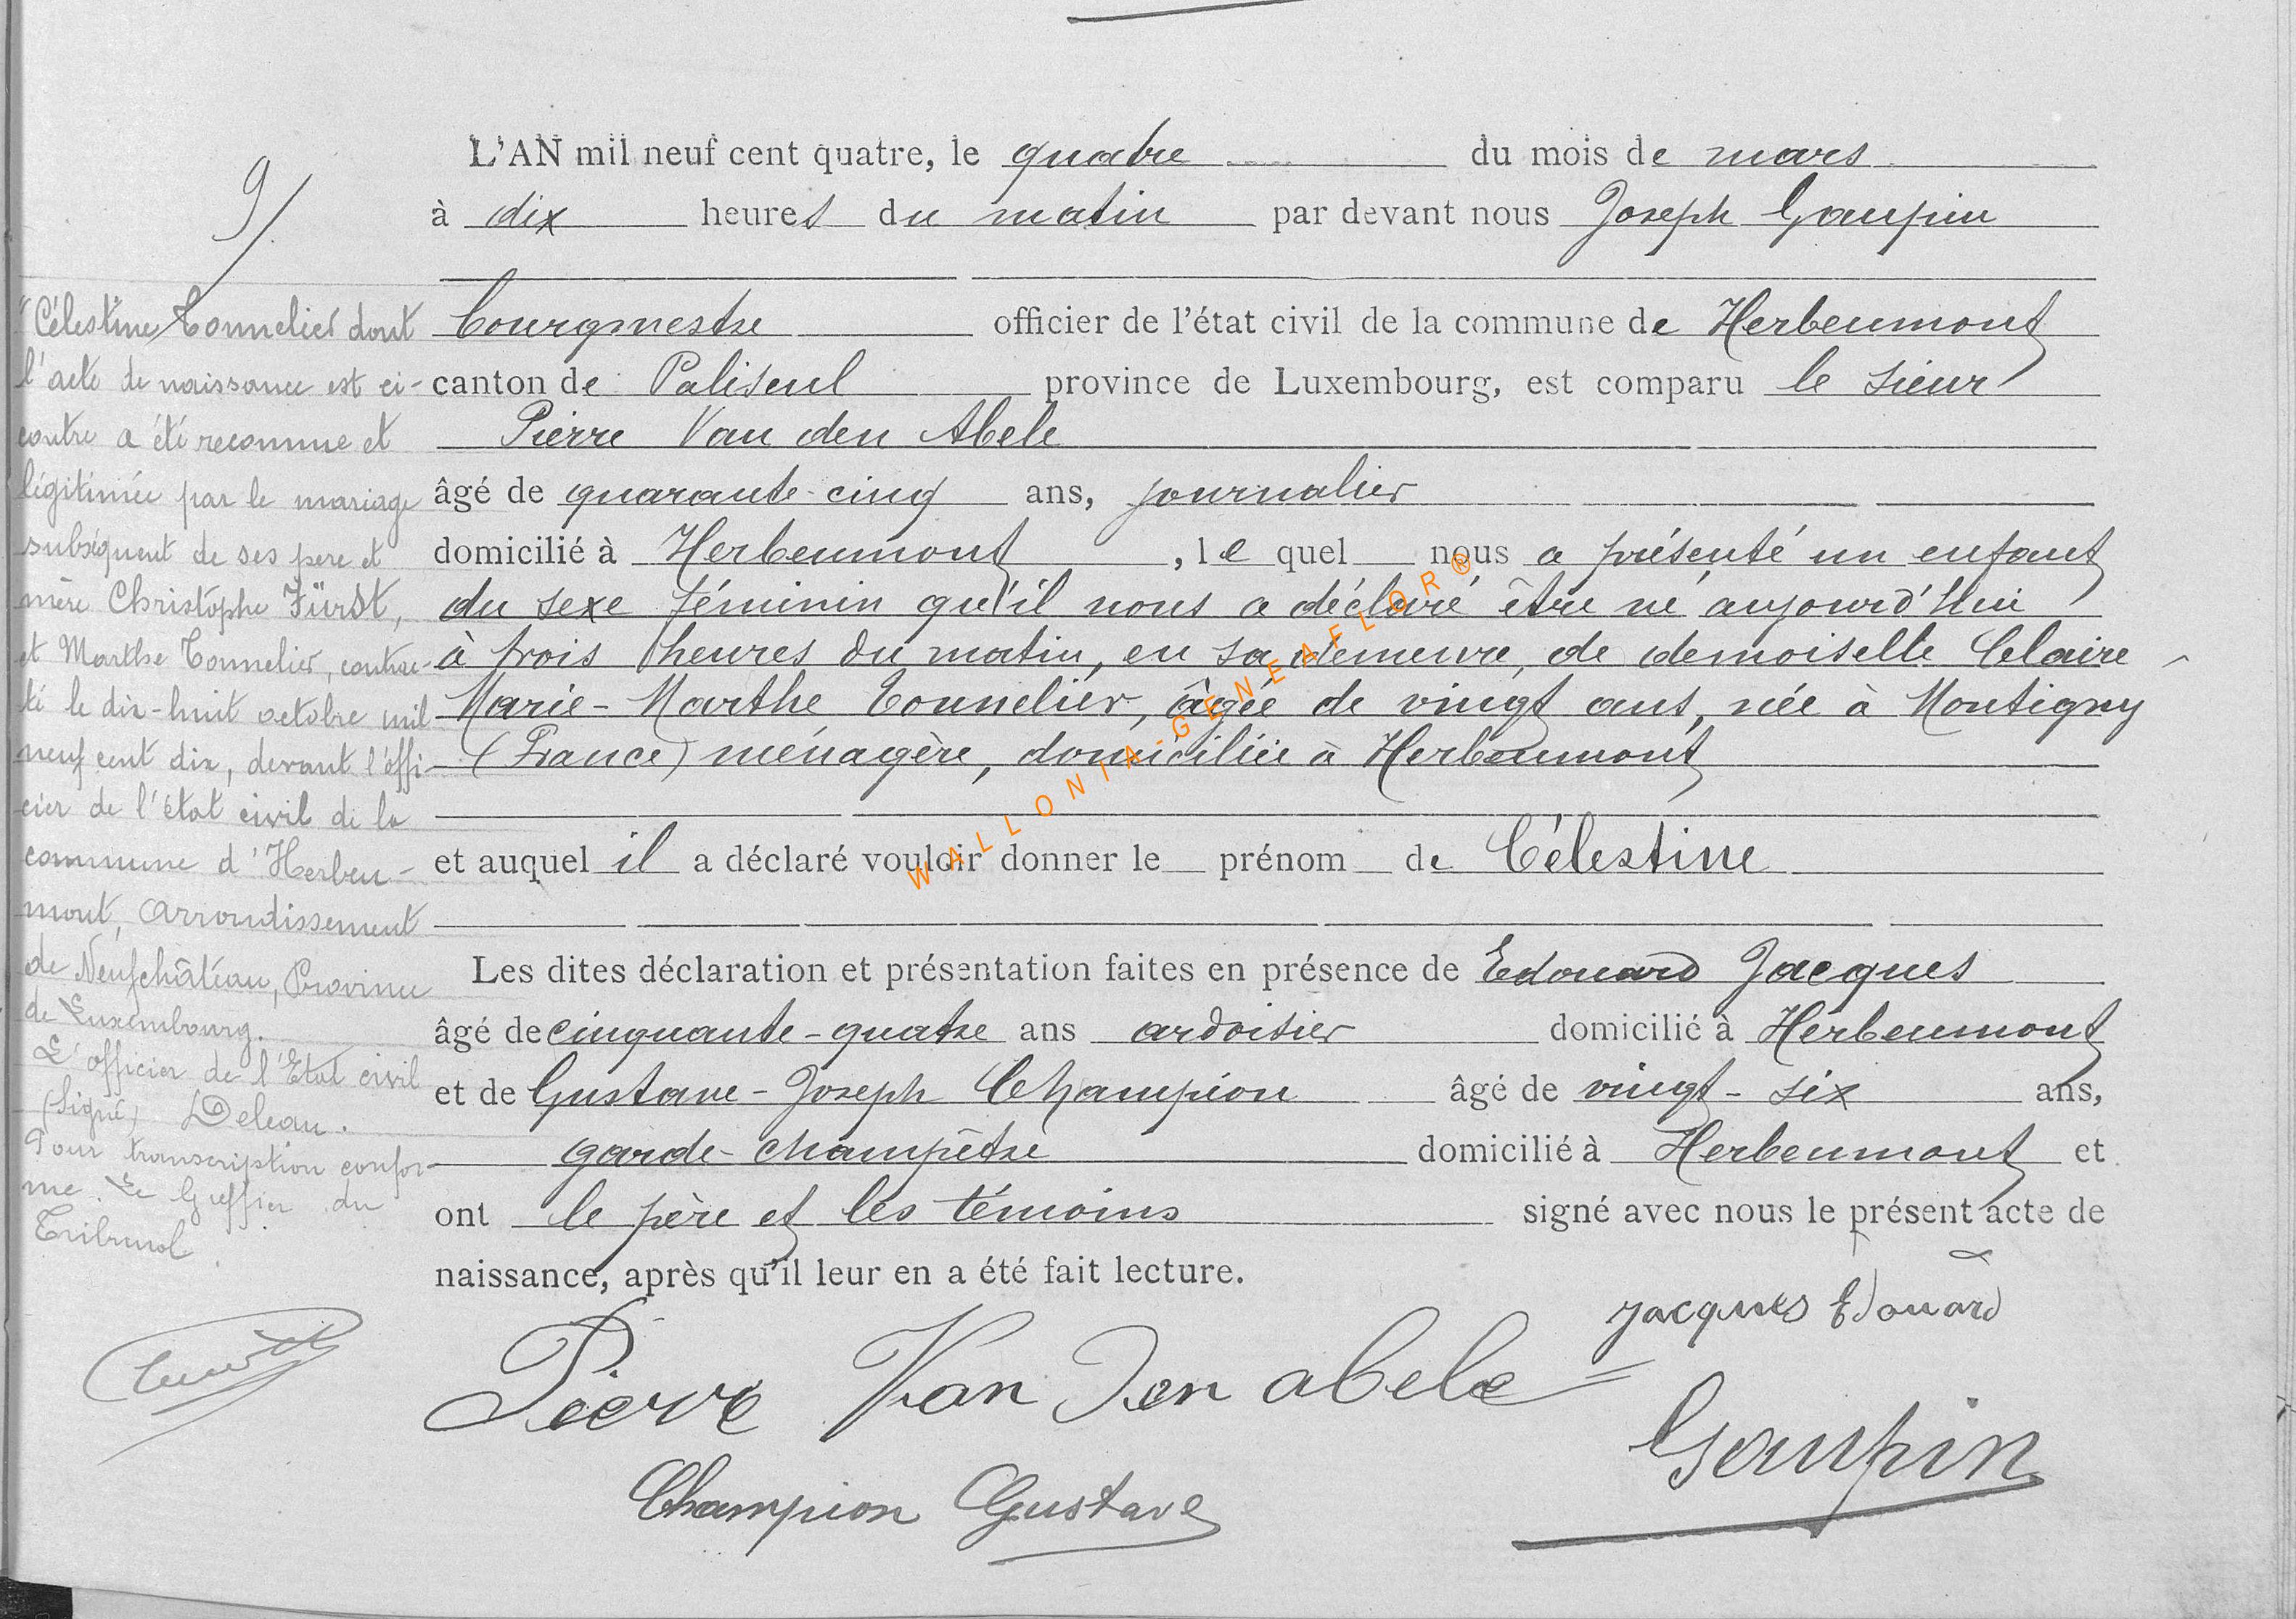 9/
L'AN mil neuf cent quatre, le quatre du mois de mars
à dix heures du matin par devant nous Joseph Goupin
bourgmestre officier de l'état civil de la commune de Herbeumont
canton de Paliseul province de Luxembourg, est comparu le sieur
Pierre Van den Abele
âgé de quarante-cinq ans, journalier
domicilié à Herbeumont, le quel nous a présenté un enfant
du sexe féminin qu'il nous a déclaré être né aujourd'hui
à trois heures du matin, en sa demeure, de demoiselle Claire-
Marie-Marthe Tonnelier, âgée de vingt ans, née à Montigny
(France) ménagère, domiciliée à Herbeumont
et auquel il a déclaré vouloir donner le prénom de Célestine
Les dites déclaration et présentation faites en présence de Edouard Jacques
âgé de cinquante-quatre ans ardoisier domicilié à Herbeumont
et de Gustave-Joseph Champion âgé de vingt-six ans,
garde-champêtre domicilié à Herbeumont et
ont le père et les témoins signé avec nous le présent acte de
naissance, après qu'il leur en a été fait lecture.
Jacques Edouard
Pierre Van Den abele
Goupin
Champion Gustave
"Célestine Tonnelier dont
l'acte de naissance est ci-
contre a été reconnue et
légitimée par le mariage
subséquent de ses pere et
mère Christophe Fürst,
et Marthe Tonnelier, contrac-
té le dix-huit octobre mil
neuf cent dix, devant l'offi-
cier de l'état civil de la
commune d'Herbeu-
mont, arrondissement
de Neufchâteau, Province
de Luxembourg.
L'officier de l'Etat civil
(Signé) Deleau.
Pour transcription confor-
me. Le Greffier du
Tribunal.
WALLONIA-GENEAFLOR®